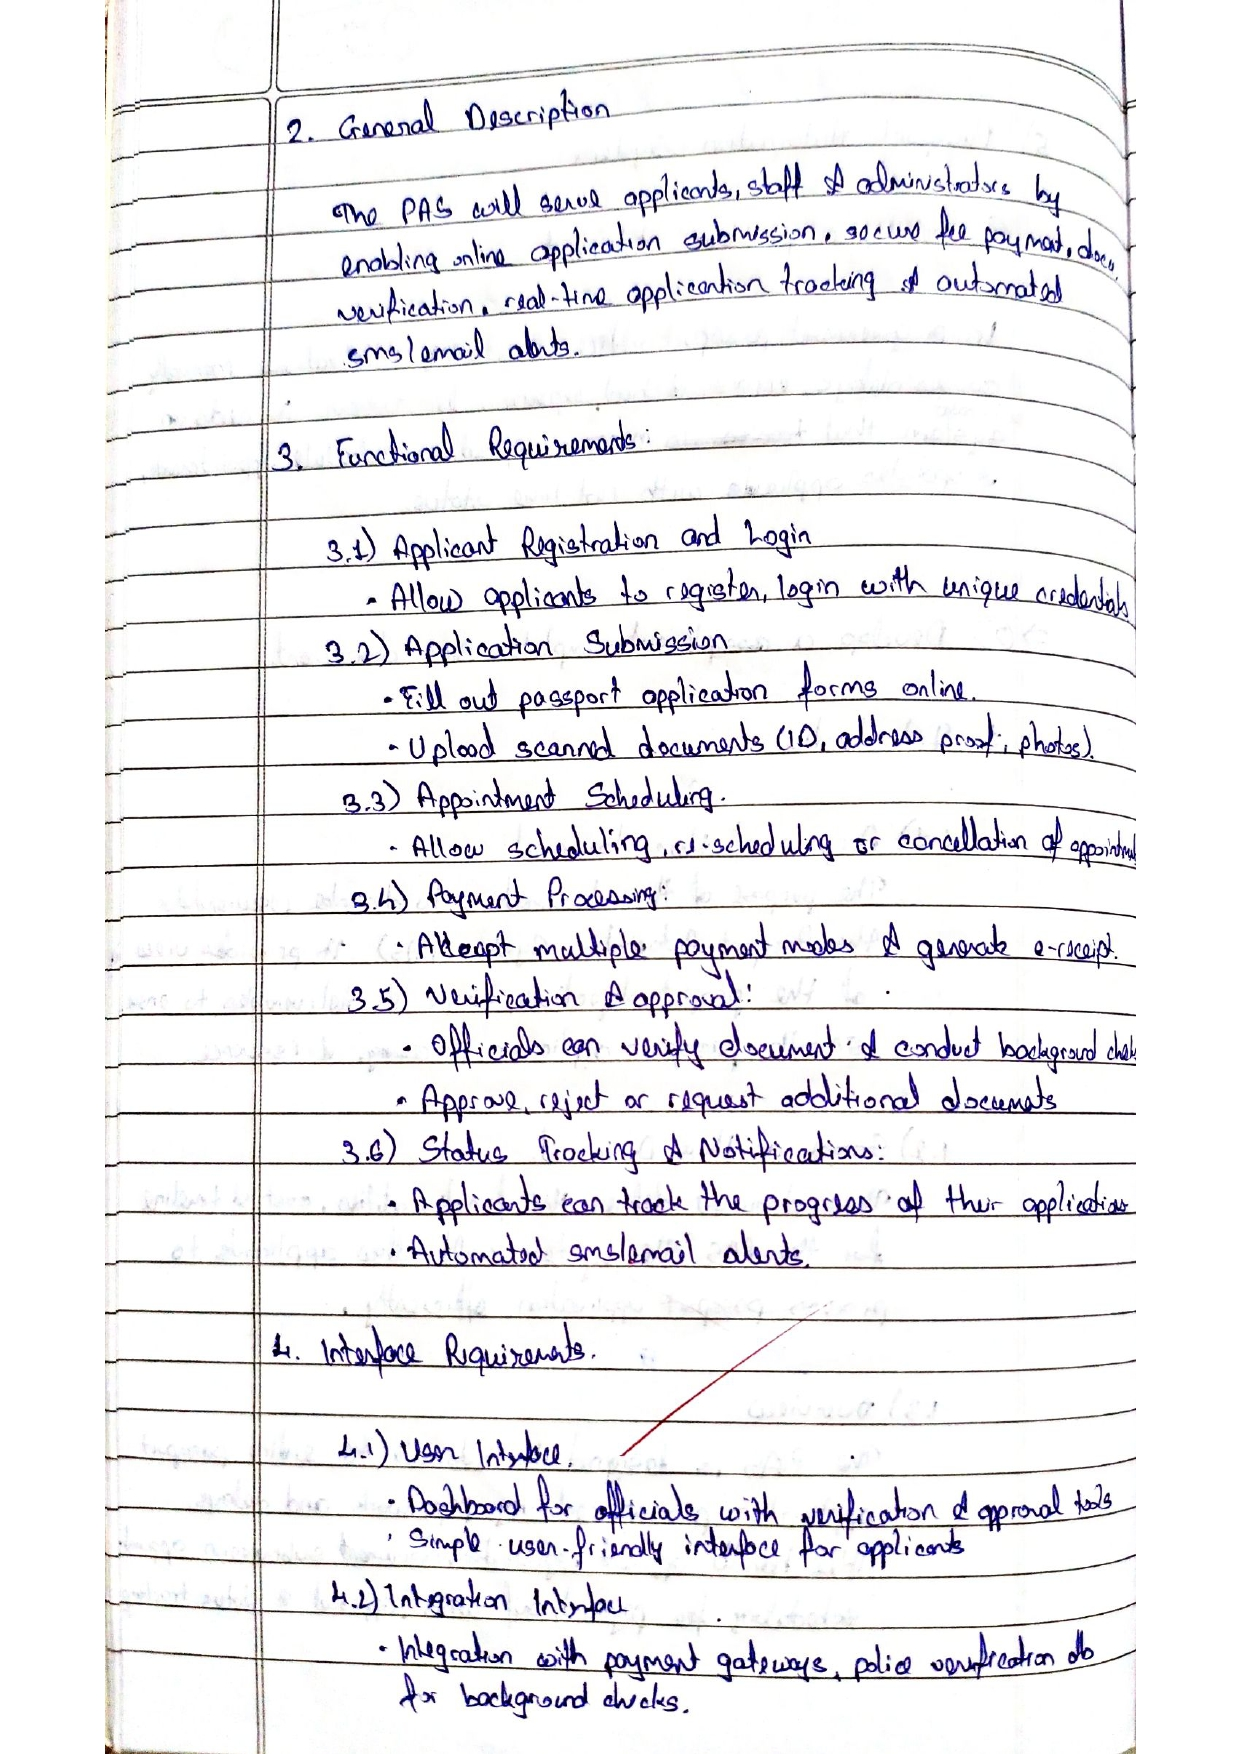 2. General Description
The PAS will serve applicants, staff & administrators by
enabling online application submission, secure fee payment, docu
verification, real-time application tracking & automated
sms/email alerts.
3. Functional Requirements:
3.1) Applicant Registration and Login
• Allow applicants to register, login with unique credentials
3.2) Application Submission
• Fill out passport application forms online.
• Upload scanned documents (ID, address proof, photos).
3.3) Appointment Scheduling.
• Allow scheduling, re-scheduling or cancellation of appointment
3.4) Payment Processing:
• Accept multiple payment modes & generate e-receipt.
3.5) Verification & approval:
• Officials can verify document & conduct background
• Approve, reject or request additional documents
3.6) Status Tracking & Notifications:
• Applicants can track the progress of their application
• Automated sms/email alerts.
4. Interface Requirements.
4.1) User Interface.
• Dashboard for officials with verification & approval tools
• Simple user-friendly interface for applicants
4.2) Integration Interface
• Integration with payment gateways, police verification db
for background checks.